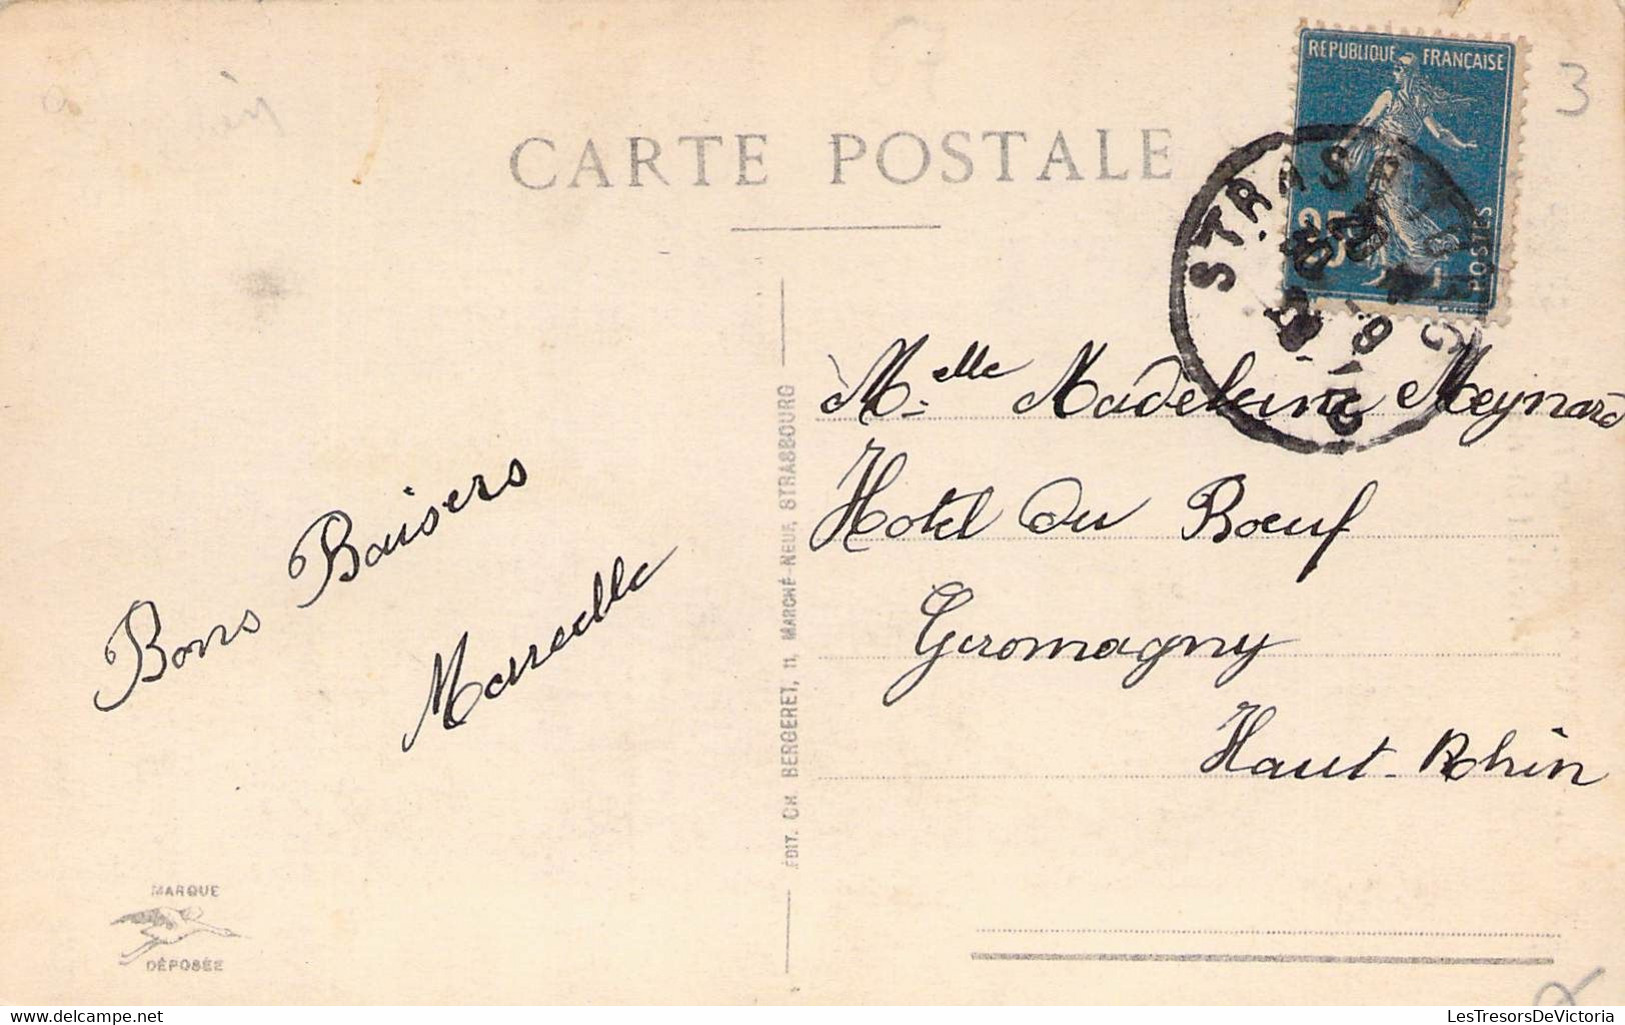 CARTE POSTALE
REPUBLIQUE FRANÇAISE
25
POSTES
STRASBOURG
3
Bons Baisers
Marcelle
Melle Madeleine Meynard
Hotel du Boeuf
Giromagny
Haut-Rhin
ÉDIT. CH. BERGERET, 11, MARCHÉ-NEUF, STRASBOURG
MARQUE
DÉPOSÉE
LesTresorsDeVictoria.com
LesTresorsDeVictoria